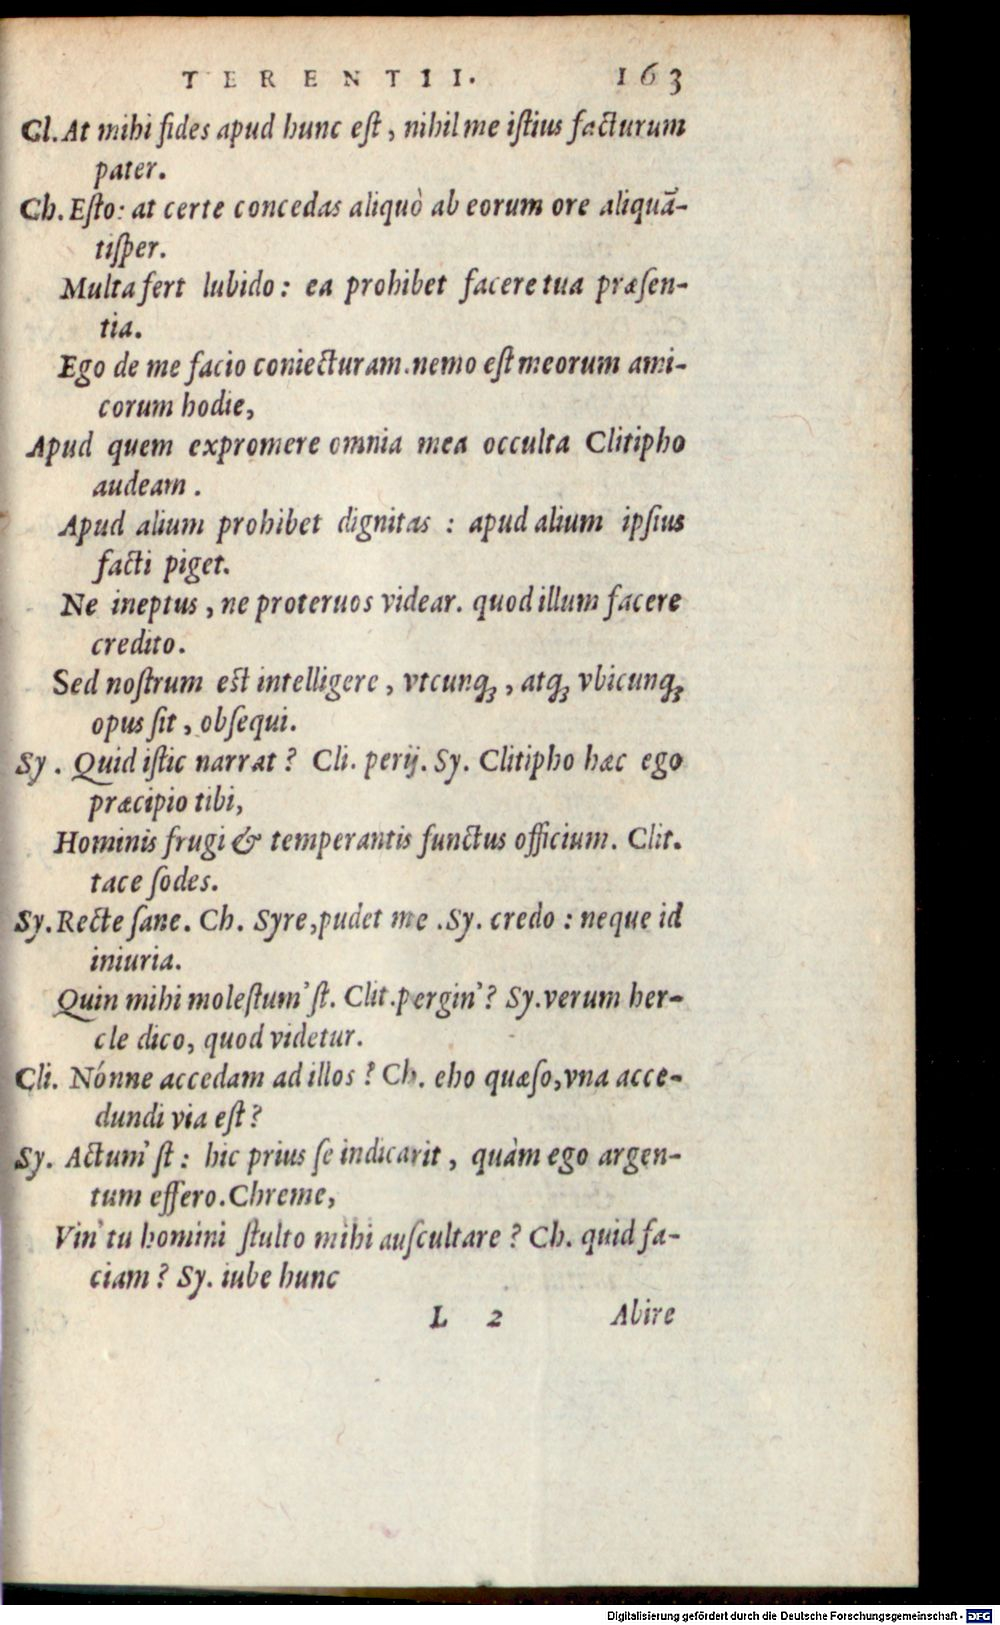 TERENTII. 163
Cl. At mihi fides apud hunc eſt, nihil me iſtius facturum
pater.
Ch. Eſto: at certe concedas aliquò ab eorum ore aliquā-
tiſper.
Multa fert lubido: ea prohibet facere tua præſen-
tia.
Ego de me facio coniecturam. nemo eſt meorum ami-
corum hodie,
Apud quem expromere omnia mea occulta Clitipho
audeam.
Apud alium prohibet dignitas: apud alium ipſius
facti piget.
Ne ineptus, ne proteruos videar. quod illum facere
credito.
Sed noſtrum eſt intelligere, vtcunq;, atq; vbicunq;
opus ſit, obſequi.
Sy. Quid iſtic narrat? Cli. perij. Sy. Clitipho hæc ego
præcipio tibi,
Hominis frugi & temperantis functus officium. Clit.
tace ſodes.
Sy. Recte ſane. Ch. Syre, pudet me. Sy. credo: neque id
iniuria.
Quin mihi moleſtum'ſt. Clit. pergin'? Sy. verum her-
cle dico, quod videtur.
Cli. Nónne accedam ad illos? Ch. eho quæſo, vna acce-
dundi via eſt?
Sy. Actum'ſt: hic prius ſe indicarit, quàm ego argen-
tum effero. Chreme,
Vin' tu homini ſtulto mihi auſcultare? Ch. quid fa-
ciam? Sy. iube hunc
L 2 Abire
Digitalisierung gefördert durch die Deutsche Forschungsgemeinschaft - DFG